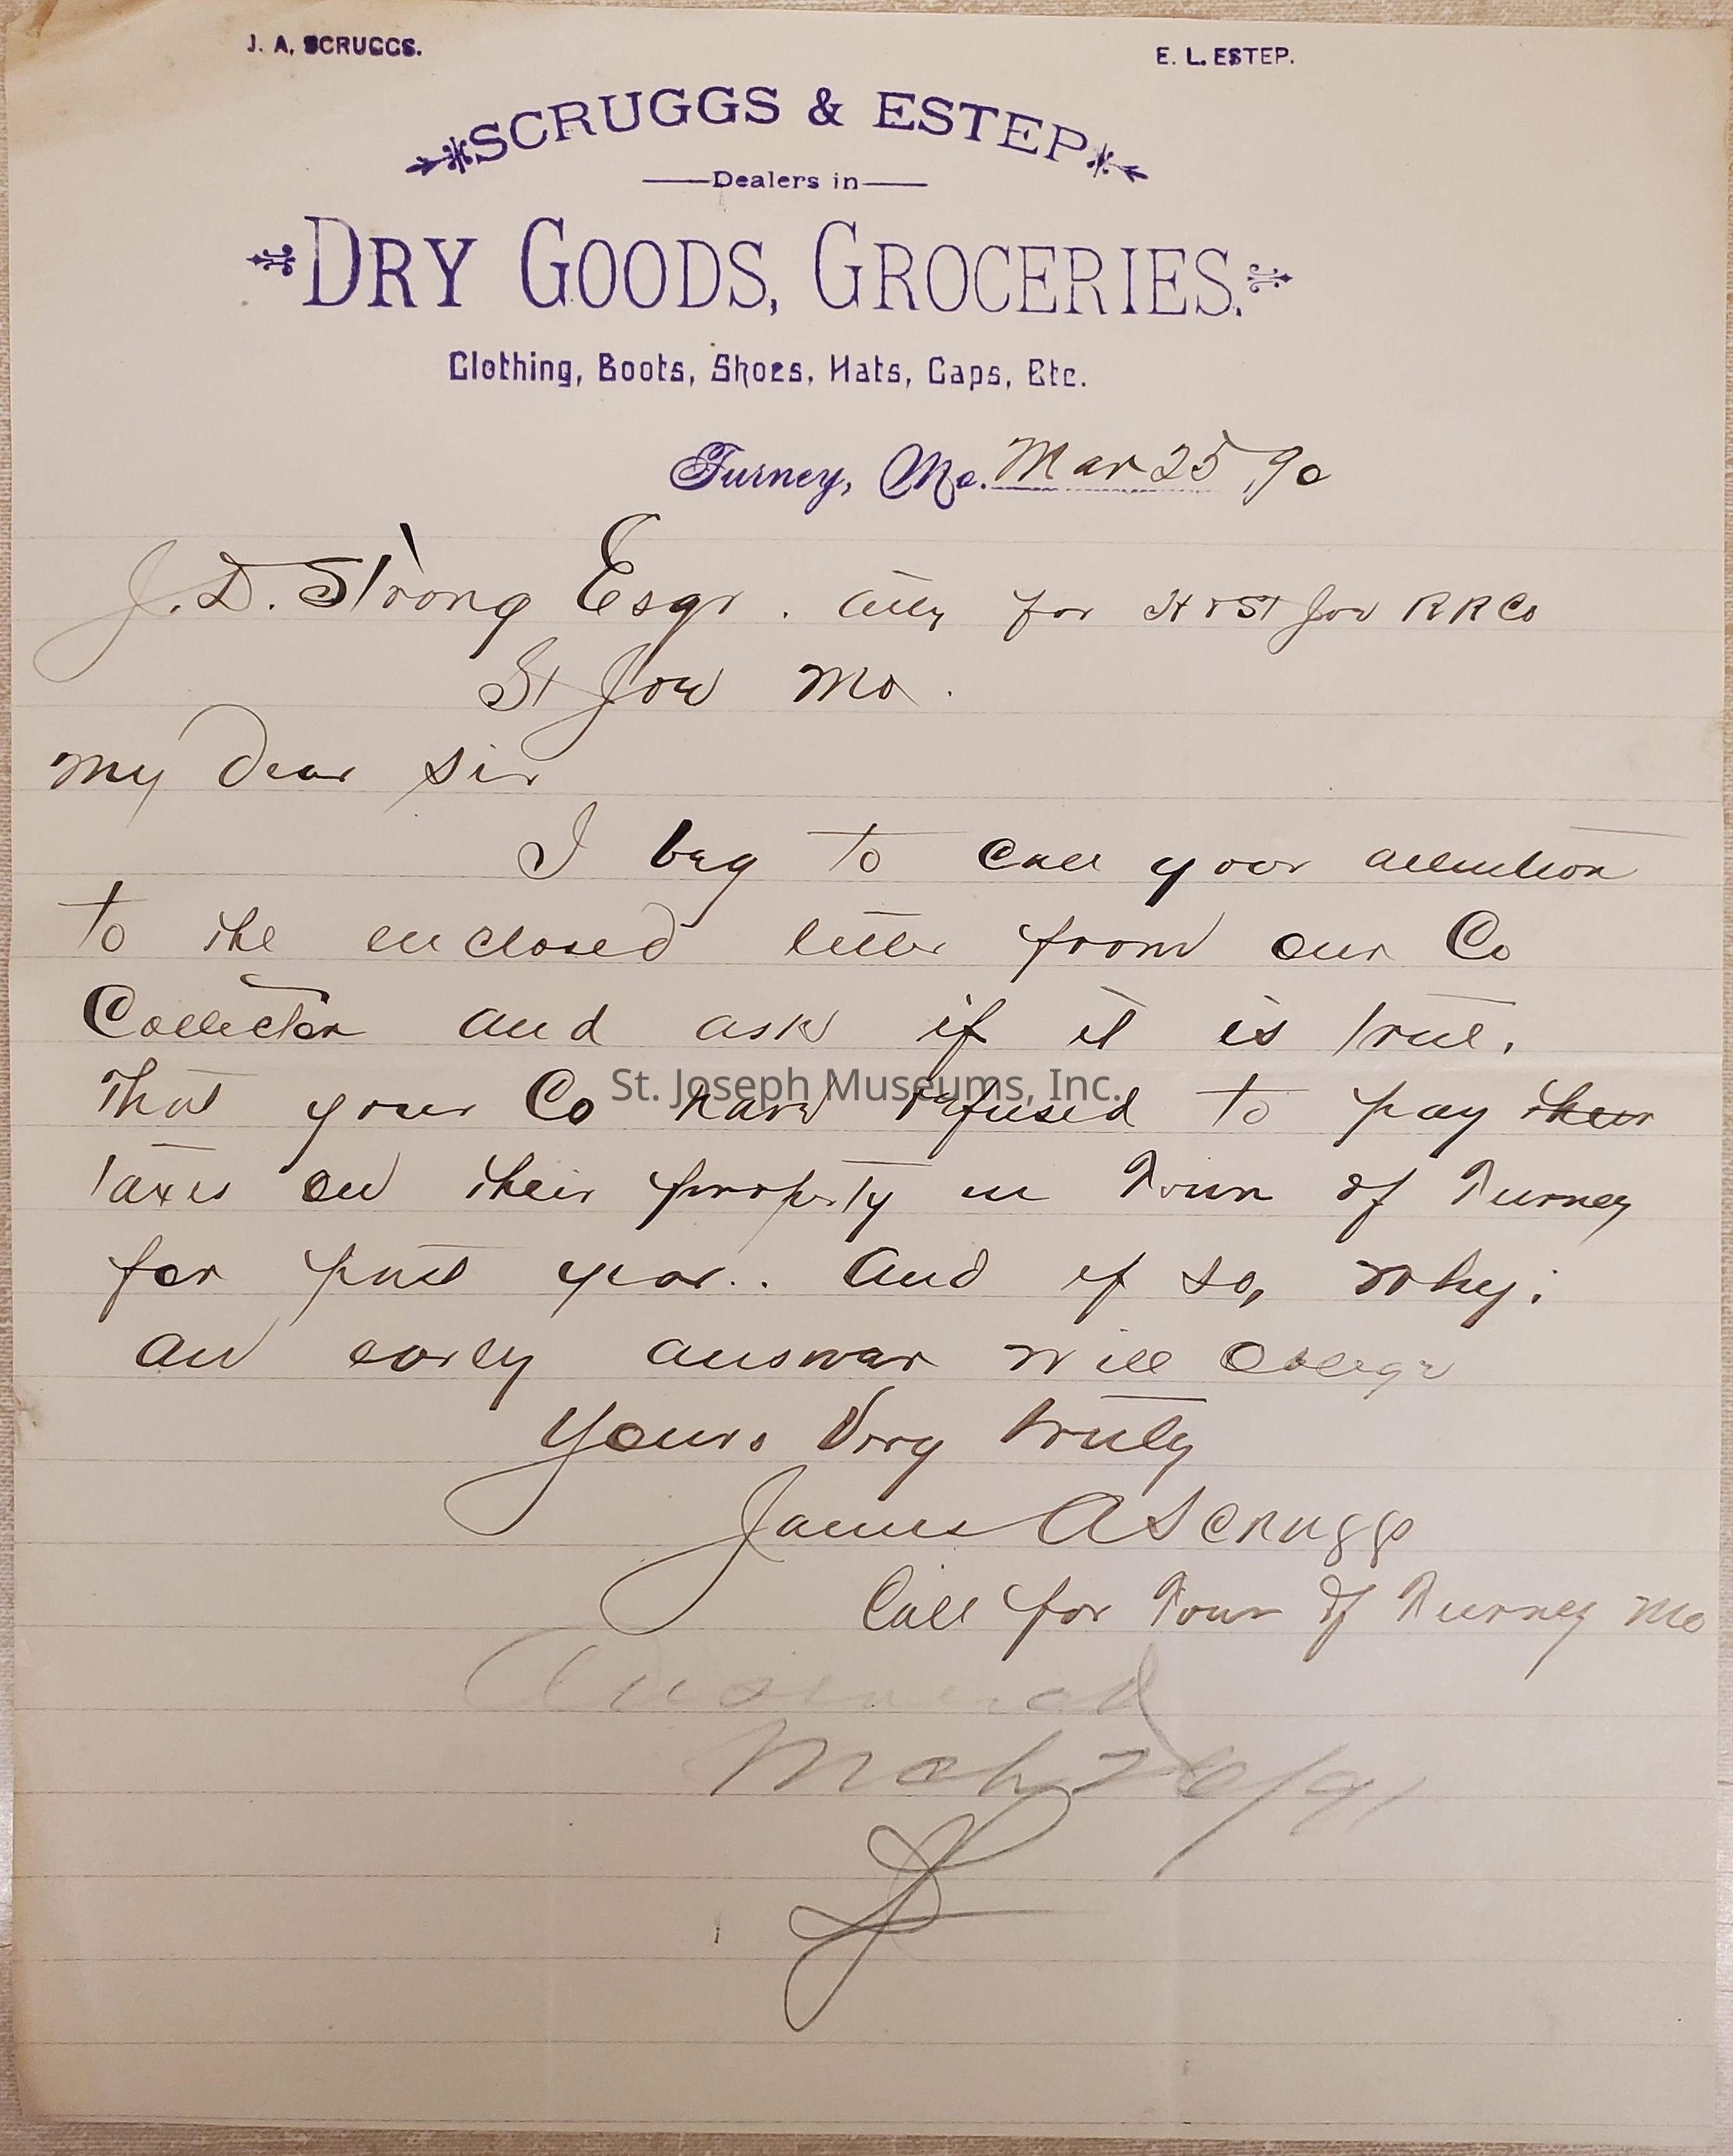 J. A. SCRUGGS. E. L. ESTEP.
SCRUGGS & ESTEP
Dealers in
DRY GOODS, GROCERIES.
Clothing, Boots, Shoes, Hats, Caps, Etc.
Turney, Mo. Mar 25, 90
J. D. Strong Esqr. atty for H & St Joe R R Co
St Joe Mo.
My Dear Sir
I beg to call your attention
to the enclosed letter from our Co
Collector and ask if it is true,
That your Co have refused to pay their
taxes on their property in Town of Turney
for past year.. And if so, why;
an early answer will oblige
Yours Very Truly
James A Scruggs
Coll for Town of Turney Mo
Answered
Mch 26/91
St. Joseph Museums, Inc.